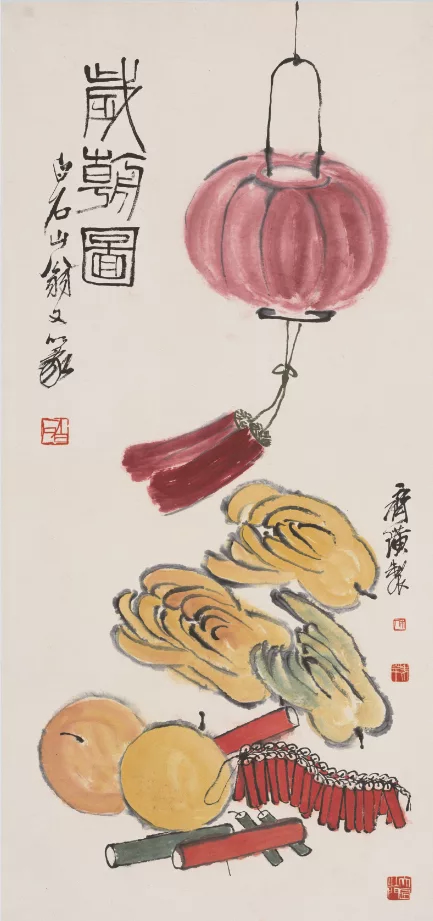 歲朝圖
白石山翁又篆
齊璜製
白石